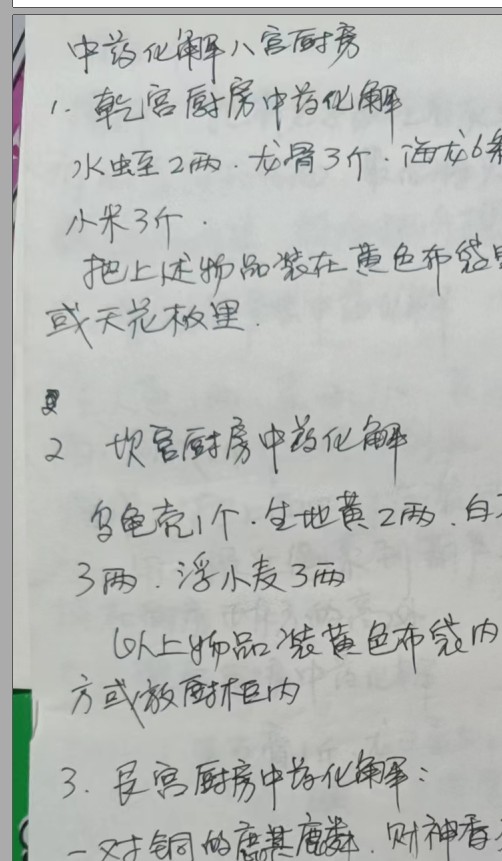 中药化解八宫厨房
1. 乾宫厨房中药化解
水虫至2两. 龙骨3个. 海龙6条
小米3个.
把上述物品装在黄色布袋里
或天花板里.
2 坎宫厨房中药化解
乌龟壳1个. 生地黄2两. 白
3两. 浮小麦3两
以上物品装黄色布袋内
方或放厨柜内
3. 艮宫厨房中药化解:
一对铜的麒麟. 财神香